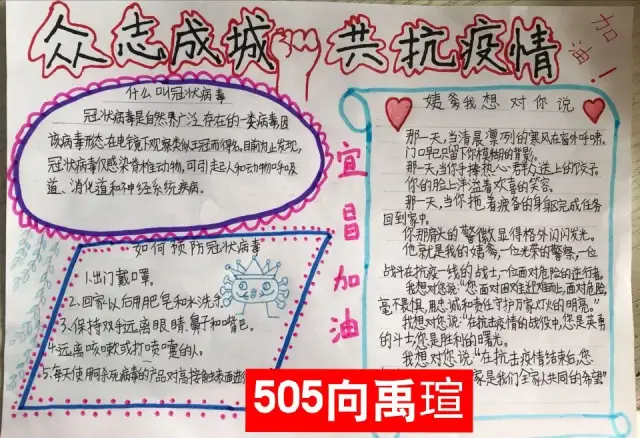 众志成城 共抗疫情
加油!
什么叫冠状病毒
冠状病毒是自然界广泛存在的一类病毒因
该病毒形态在电镜下观察类似王冠而得名。目前为止发现,
冠状病毒仅感染脊椎动物,可引起人和动物呼吸
道、消化道和神经系统疾病。
如何预防冠状病毒
1.出门戴口罩。
2.回家以后用肥皂和水洗手
3.保持双手远离眼睛、鼻子和嘴巴。
4.远离咳嗽或打喷嚏的人。
5.每天使用杀病毒的产品对高接触表面进行
宜昌加油
姨爹我想对你说
那一天,当清晨凛列的寒风在窗外呼啸。
门口只留下你模糊的背影。
那一天,当你手捧热心群众送上的饺子。
你的脸上洋溢着欢喜的笑容。
那一天,当你拖着疲备的身躯完成任务
回到家中。
你那肩头的警徽显得格外闪闪发光。
他就是我的姨爹,一位光荣的警察,一位
战斗在抗疫一线的战士,一位面对危险的逆行者。
我想对您说:“您面对困难迎难而上,面对危险
毫不畏惧,用忠诚和责任守护万家灯火的明亮。”
我想对您说:“在抗击疫情的战役中,您是英勇
的斗士,您是胜利的曙光。
我想对您说:“在抗击疫情结束后,您
家是我们全家人共同的希望”
505向禹瑄